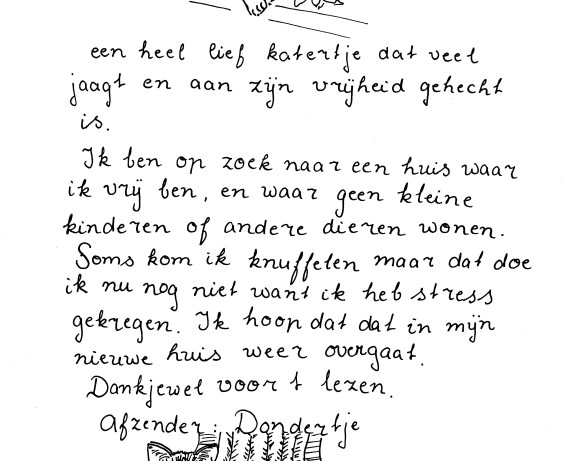 een heel lief katertje dat veel
jaagt en aan zijn vrijheid gehecht
is.
Ik ben op zoek naar een huis waar
ik vrij ben, en waar geen kleine
kinderen of andere dieren wonen.
Soms kom ik knuffelen maar dat doe
ik nu nog niet want ik heb stress
gekregen. Ik hoop dat dat in mijn
nieuwe huis weer overgaat.
Dankjewel voor t lezen.
Afzender: Dondertje